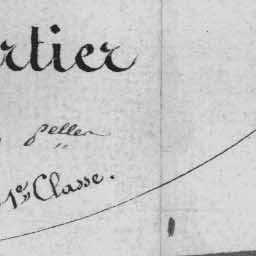 rtier
Pellen
"
1e Classe.